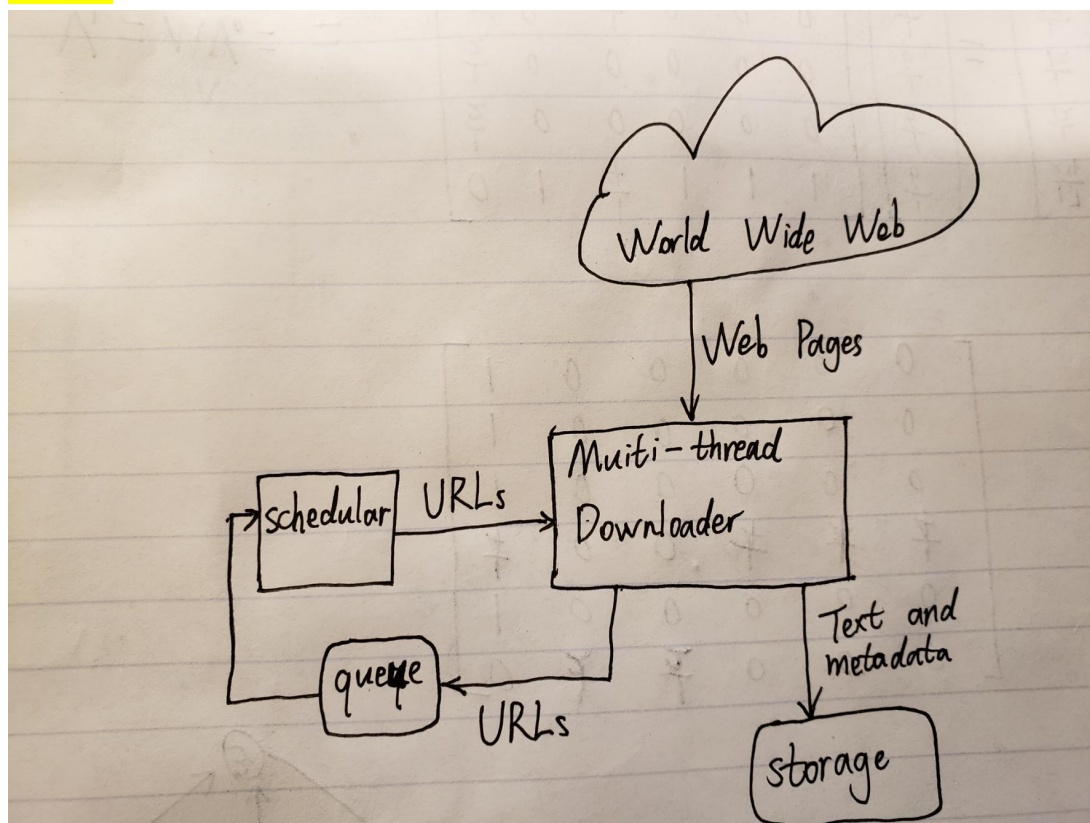 World Wide Web
Web Pages
Muiti-thread
Downloader
schedular
URLs
Text and
metadata
queue
URLs
storage